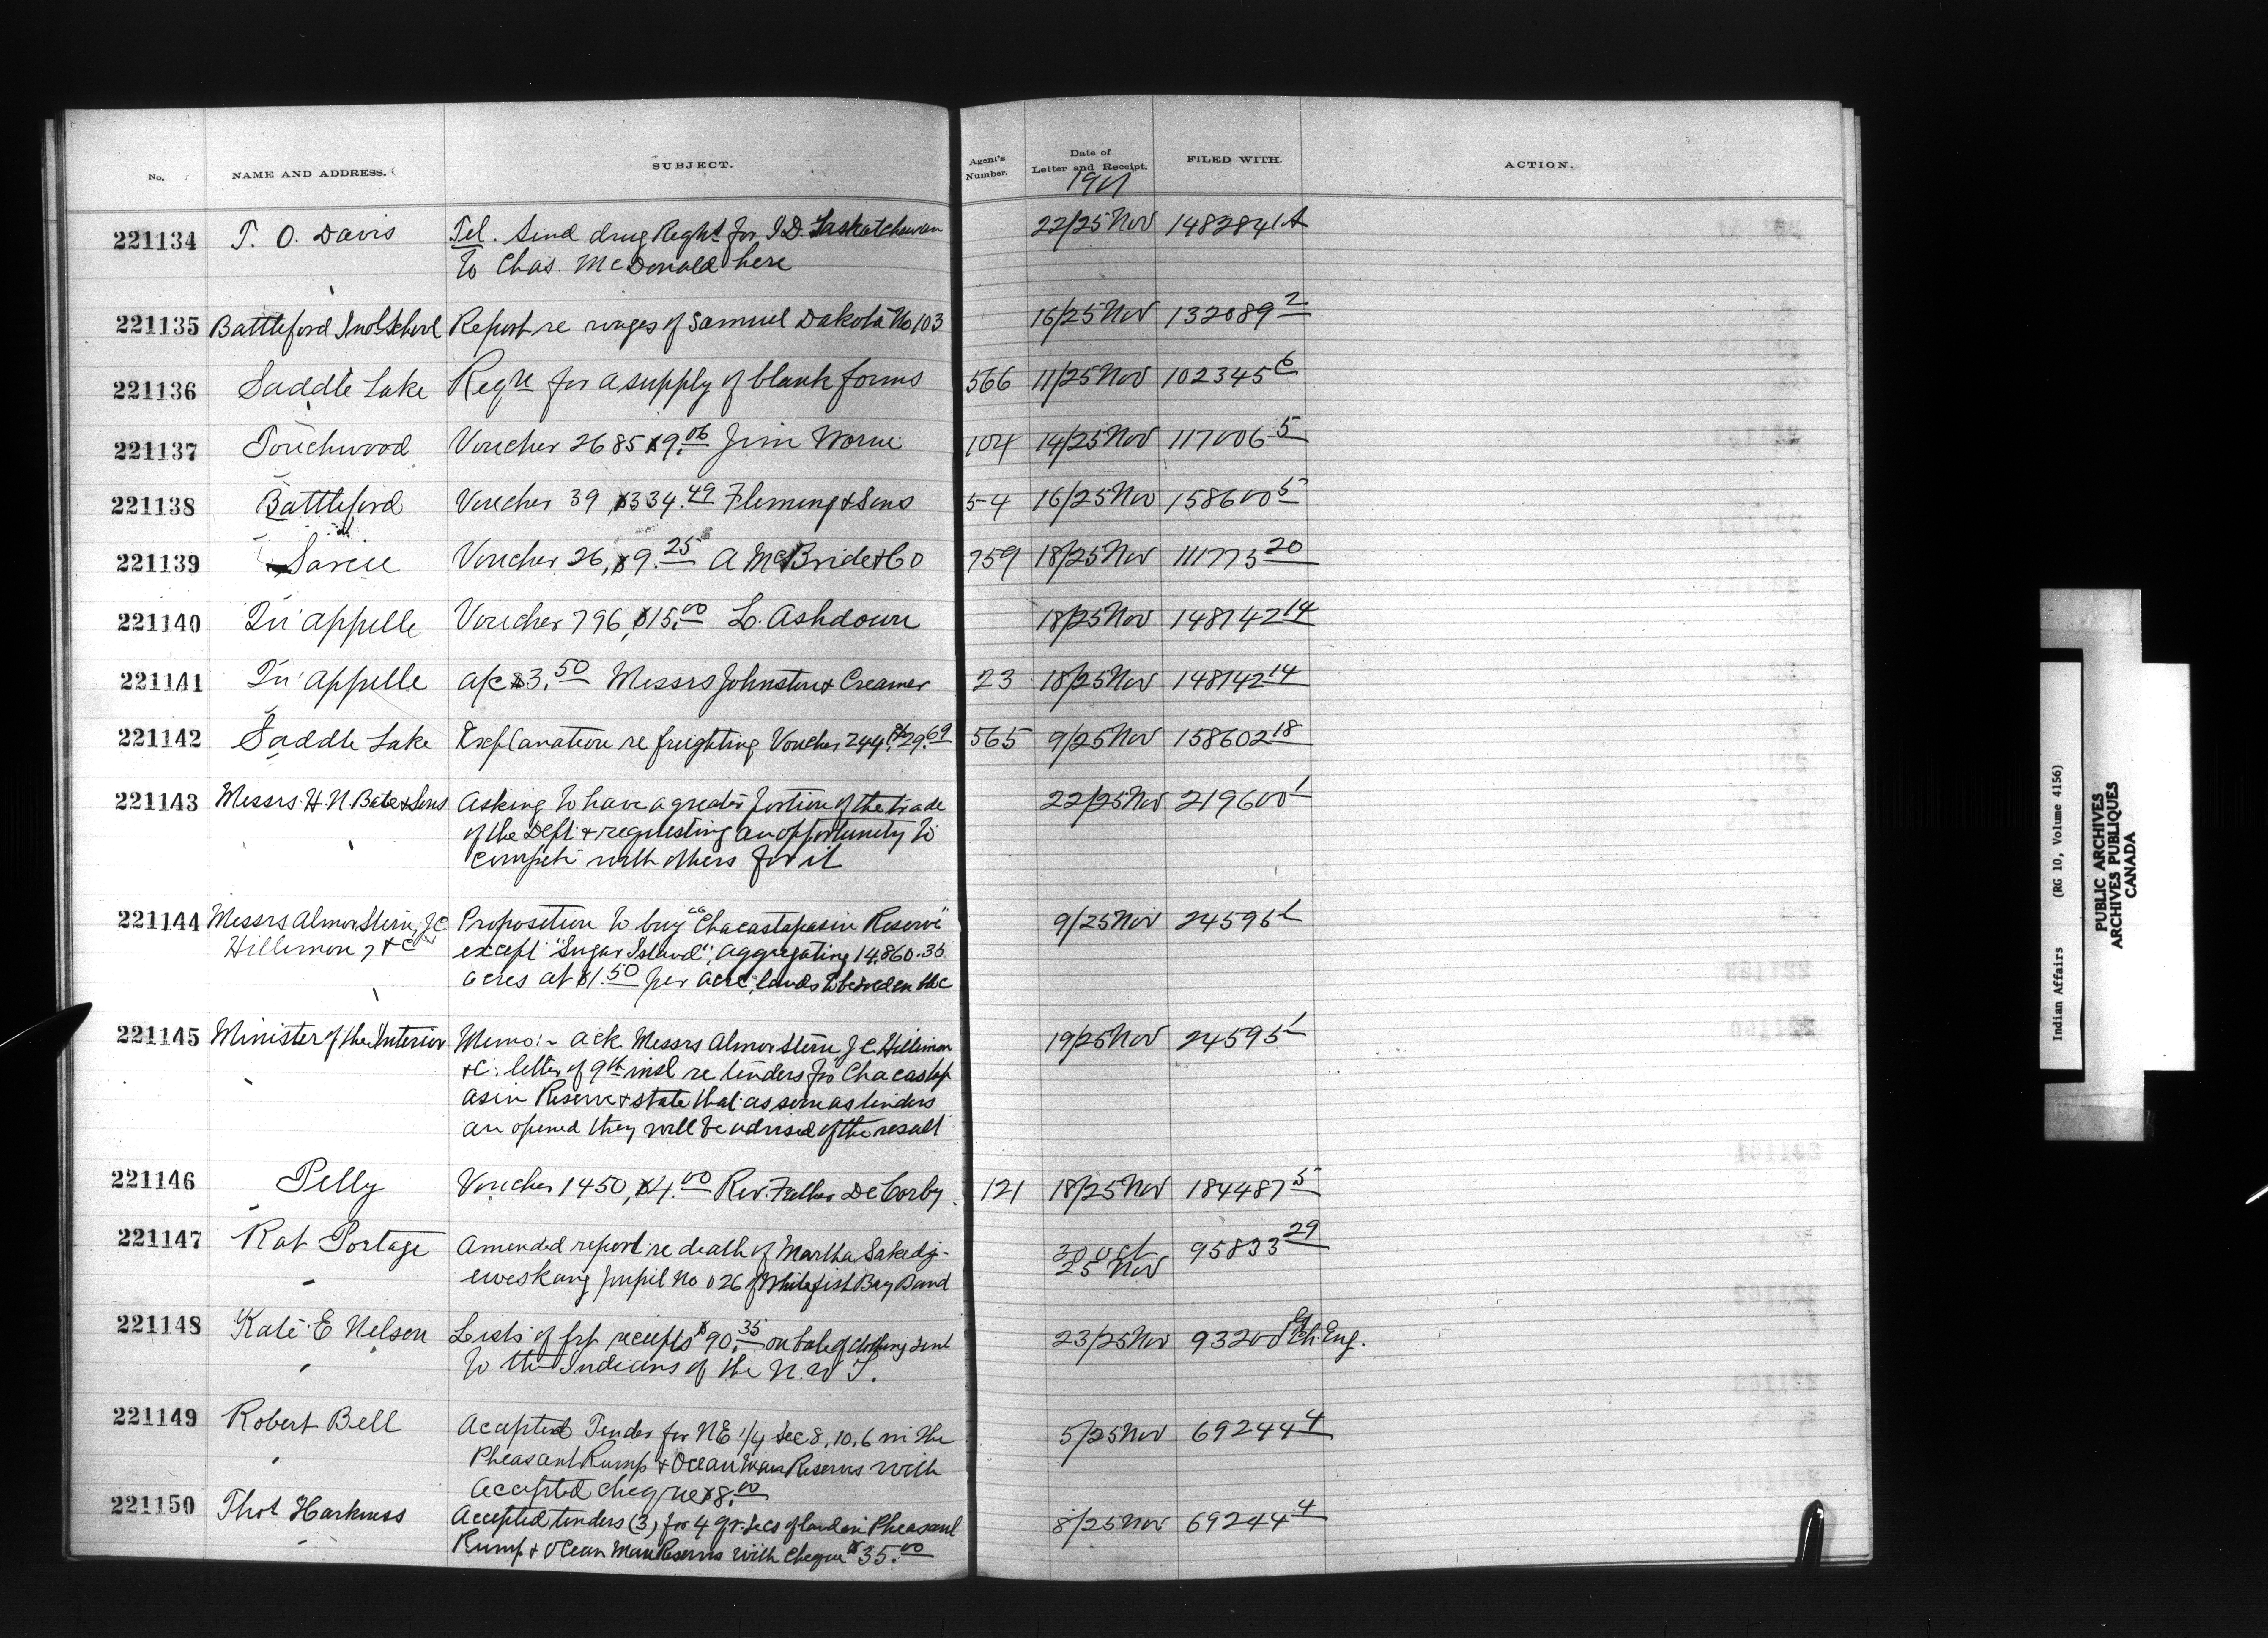 No. NAME AND ADDRESS. SUBJECT. Agent's Number. Date of Letter and Receipt. FILED WITH. ACTION.
1901
221134 T. O. Davis Tel. Send drug Reqht for I.D. Saskatchewan 22/25 Nov 148284/1A
to Chas. McDonald here
221135 Battleford Ind School Report re wages of Samuel Dakota No 103 16/25 Nov 132089 2
221136 Saddle Lake Reqn for a supply of blank forms 566 11/25 Nov 102345 6
221137 Touchwood Voucher 2685 $9.06 Jim Worne 104 14/25 Nov 117006 5
221138 Battleford Voucher 39 $334.49 Fleming & Sons 54 16/25 Nov 158600 5
221139 Sarcee Voucher 26, $9.25 A McBride & Co 759 18/25 Nov 111773 20
221140 Qu'appelle Voucher 796, $15.00 L. Ashdown 18/25 Nov 148142 14
221141 Qu'appelle a/c $3.50 Messrs Johnston & Creamer 23 18/25 Nov 148142 14
221142 Saddle Lake Explanation re freighting Voucher 244, $29.69 565 9/25 Nov 158602 18
221143 Messrs. H N Bate & Sons Asking to have a greater portion of the trade 22/25 Nov 219600 1
of the Dept. & requesting an opportunity to
compete with others for it
221144 Messrs Almor Stern, J.C. Proposition to buy "Chacastapasin Reserve" 9/25 Nov 24595
Hillemon, &C except "Sugar Island", aggregating 14,860.35
acres at $1.50 per acre, lands to be sold en bloc
221145 Minister of the Interior Memo:- ack Messrs Almor Stern, J C. Hillimon 19/25 Nov 24595
&c. letter of 9th inst re tenders for Chacastap
asin Reserve & state that as soon as tenders
are opened they will be advised of the result
221146 Pelly Voucher 1450, $4.00 Rev. Father DeCorby 121 18/25 Nov 184487 5
221147 Rat Portage Amended report re death of Martha Sakedj- 30 Oct 95833 29
eweskang pupil No 026 of Whitefish Bay Band 25 Nov
221148 Kate E Nelson Lists of frt receipts $90.35 on bale of clothing sent 23/25 Nov 93200 Ch. Eng.
to the Indians of the N. W T.
221149 Robert Bell Accepted Tender for NE 1/4 Sec 8, 10, 6 in the 5/25 Nov 69244 4
Pheasant Rump & Ocean Man Reserves with
Accepted cheque $8.00
221150 Thos Harkness Accepted tenders (3) for 4 qr. secs of land in Pheasant 8/25 Nov 69244 4
Rump & Ocean Man Reserves with cheque $35.00
Indian Affairs (RG 10, Volume 4156)
PUBLIC ARCHIVES
ARCHIVES PUBLIQUES
CANADA